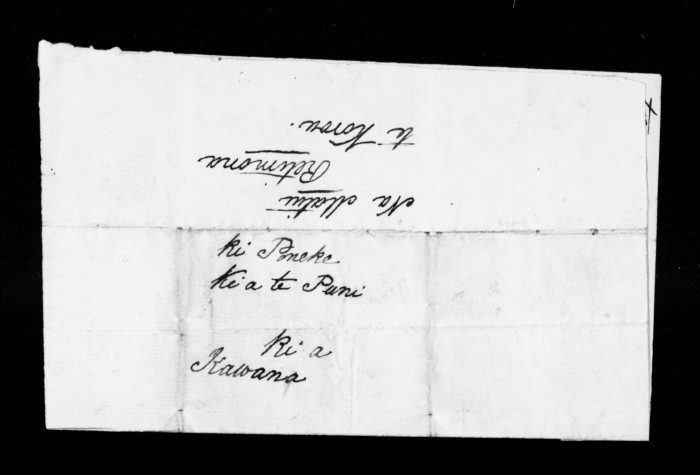 Na Matiu
Retimona
te Korou.
ki Poneke
Ki a te Puni
Ki a
Kawana